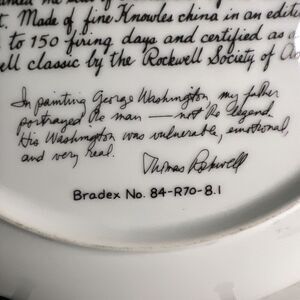 t. Made of fine Knowles china in an edit
to 150 firing days and certified as a
ell classic by the Rockwell Society of Am
In painting George Washington my father
portrayed the man — not the legend.
His Washington was vulnerable, emotional,
and very real.
Thomas Rockwell
Bradex No. 84-R70-8.1